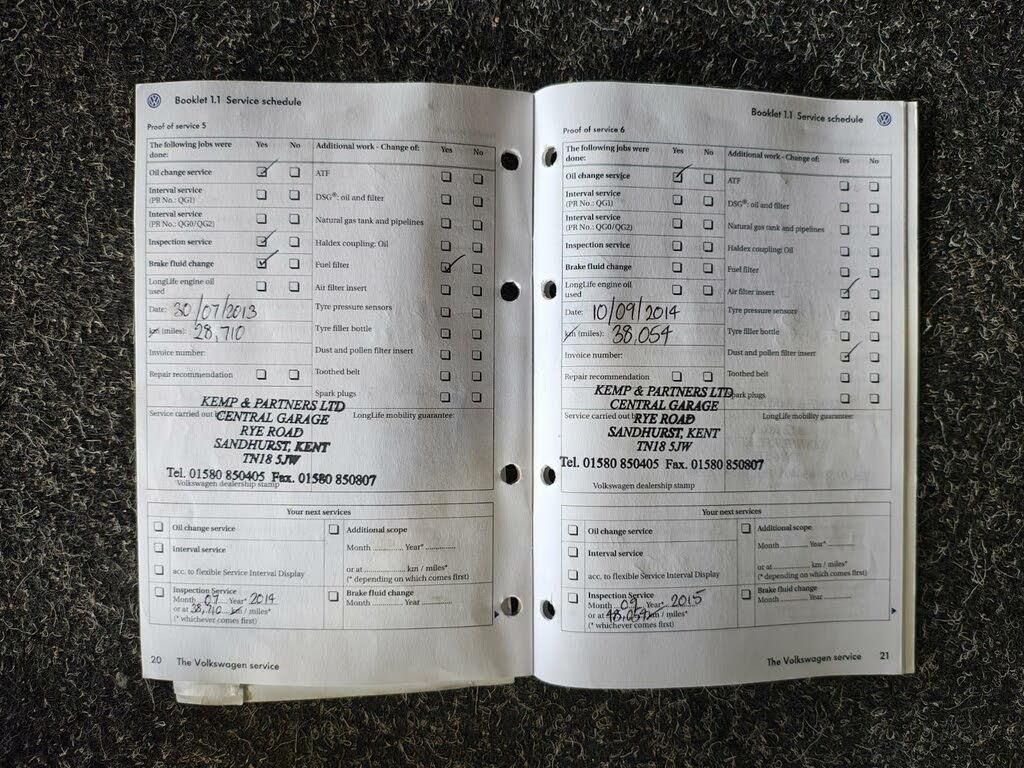 Booklet 1.1 Service schedule
Proof of service 5
The following jobs were done: Yes No
Oil change service
Interval service
(PR No.: QG1)
Interval service
(PR No.: QG0/QG2)
Inspection service
Brake fluid change
LongLife engine oil
used
Date: 30/07/2013
km (miles): 28,710
Invoice number:
Repair recommendation
Additional work - Change of: Yes No
ATF
DSG®: oil and filter
Natural gas tank and pipelines
Haldex coupling: Oil
Fuel filter
Air filter insert
Tyre pressure sensors
Tyre filler bottle
Dust and pollen filter insert
Toothed belt
Spark plugs
Service carried out by
LongLife mobility guarantee:
KEMP & PARTNERS LTD
CENTRAL GARAGE
RYE ROAD
SANDHURST, KENT
TN18 5JW
Tel. 01580 850405 Fax. 01580 850807
Volkswagen dealership stamp
Your next services
Oil change service
Interval service
acc. to flexible Service Interval Display
Inspection Service
Month 07 Year* 2014
or at 38,710 km / miles*
(* whichever comes first)
Additional scope
Month Year*
or at km / miles*
(* depending on which comes first)
Brake fluid change
Month Year
20 The Volkswagen service
Booklet 1.1 Service schedule
Proof of service 6
The following jobs were
done: Yes No
Oil change service
Interval service
(PR No.: QG1)
Interval service
(PR No.: QG0/QG2)
Inspection service
Brake fluid change
LongLife engine oil
used
Date: 10/09/2014
km (miles): 38,054
Invoice number:
Repair recommendation
Additional work - Change of: Yes No
ATF
DSG®: oil and filter
Natural gas tank and pipelines
Haldex coupling: Oil
Fuel filter
Air filter insert
Tyre pressure sensors
Tyre filler bottle
Dust and pollen filter insert
Toothed belt
Spark plugs
Service carried out by
LongLife mobility guarantee:
KEMP & PARTNERS LTD
CENTRAL GARAGE
RYE ROAD
SANDHURST, KENT
TN18 5JW
Tel. 01580 850405 Fax. 01580 850807
Volkswagen dealership stamp
Your next services
Oil change service
Interval service
acc. to flexible Service Interval Display
Inspection Service
Month 09 Year* 2015
or at 48,054 km / miles*
(* whichever comes first)
Additional scope
Month Year*
or at km / miles*
(* depending on which comes first)
Brake fluid change
Month Year
The Volkswagen service 21